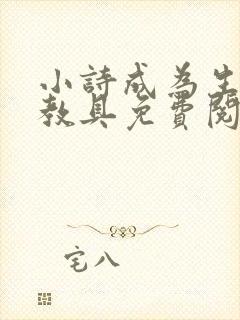 小詩成為生
教具免費閱
宅八